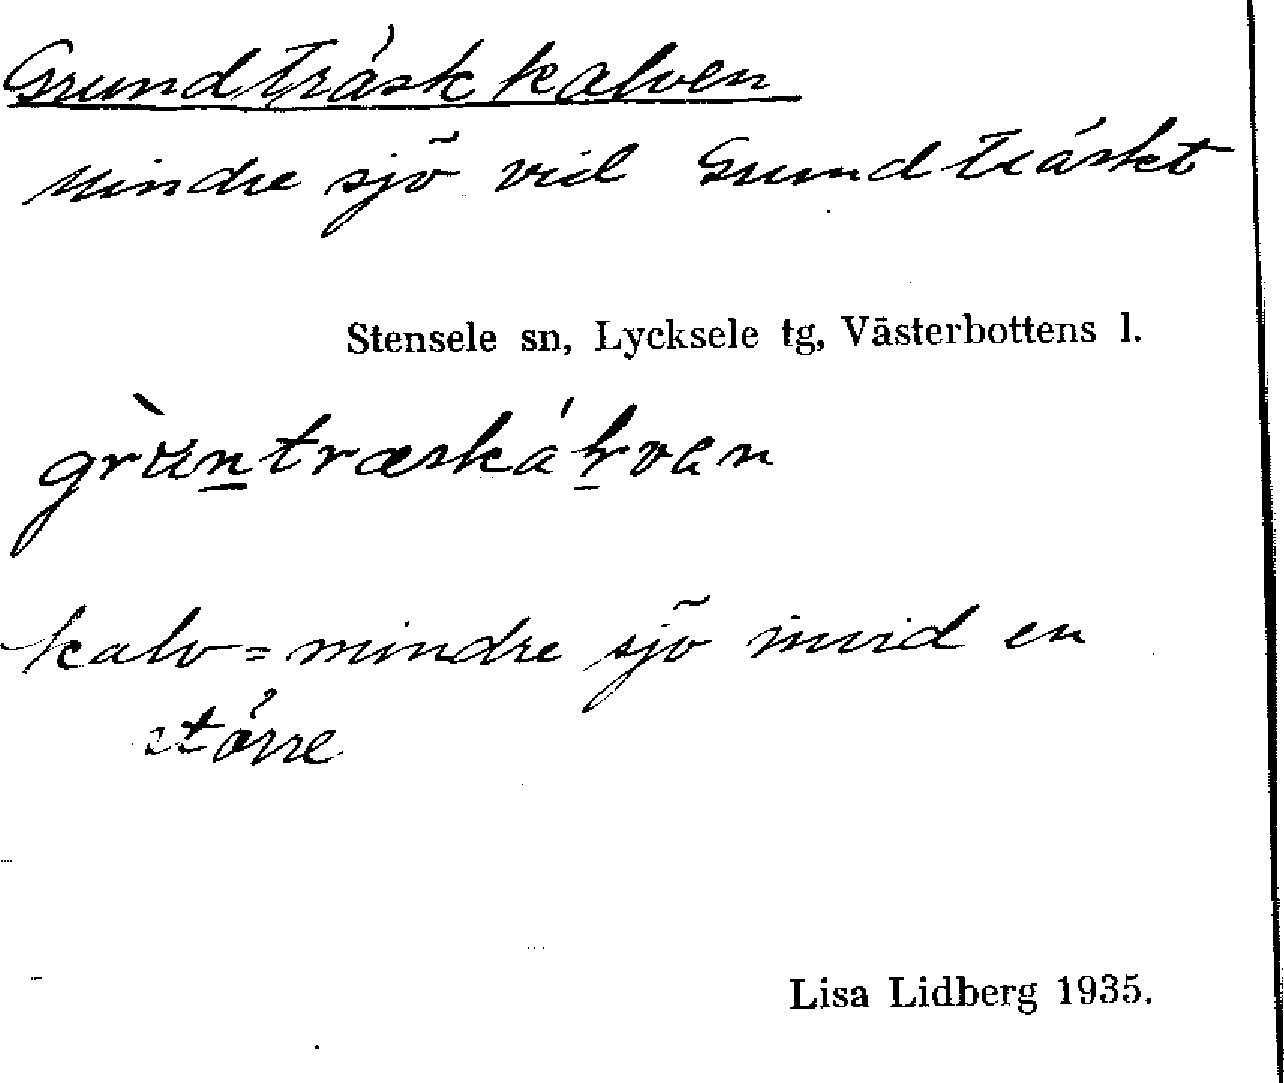 Grundträskkalven
Mindre sjö vid Grundträsket
Stensele sn, Lycksele tg, Västerbottens l.
kalv = mindre sjö invid en
större
Lisa Lidberg 1935.